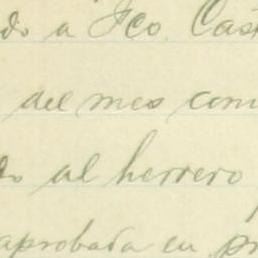 do a Fco. Cast
del mes com
do al herrero
aprobada en pr